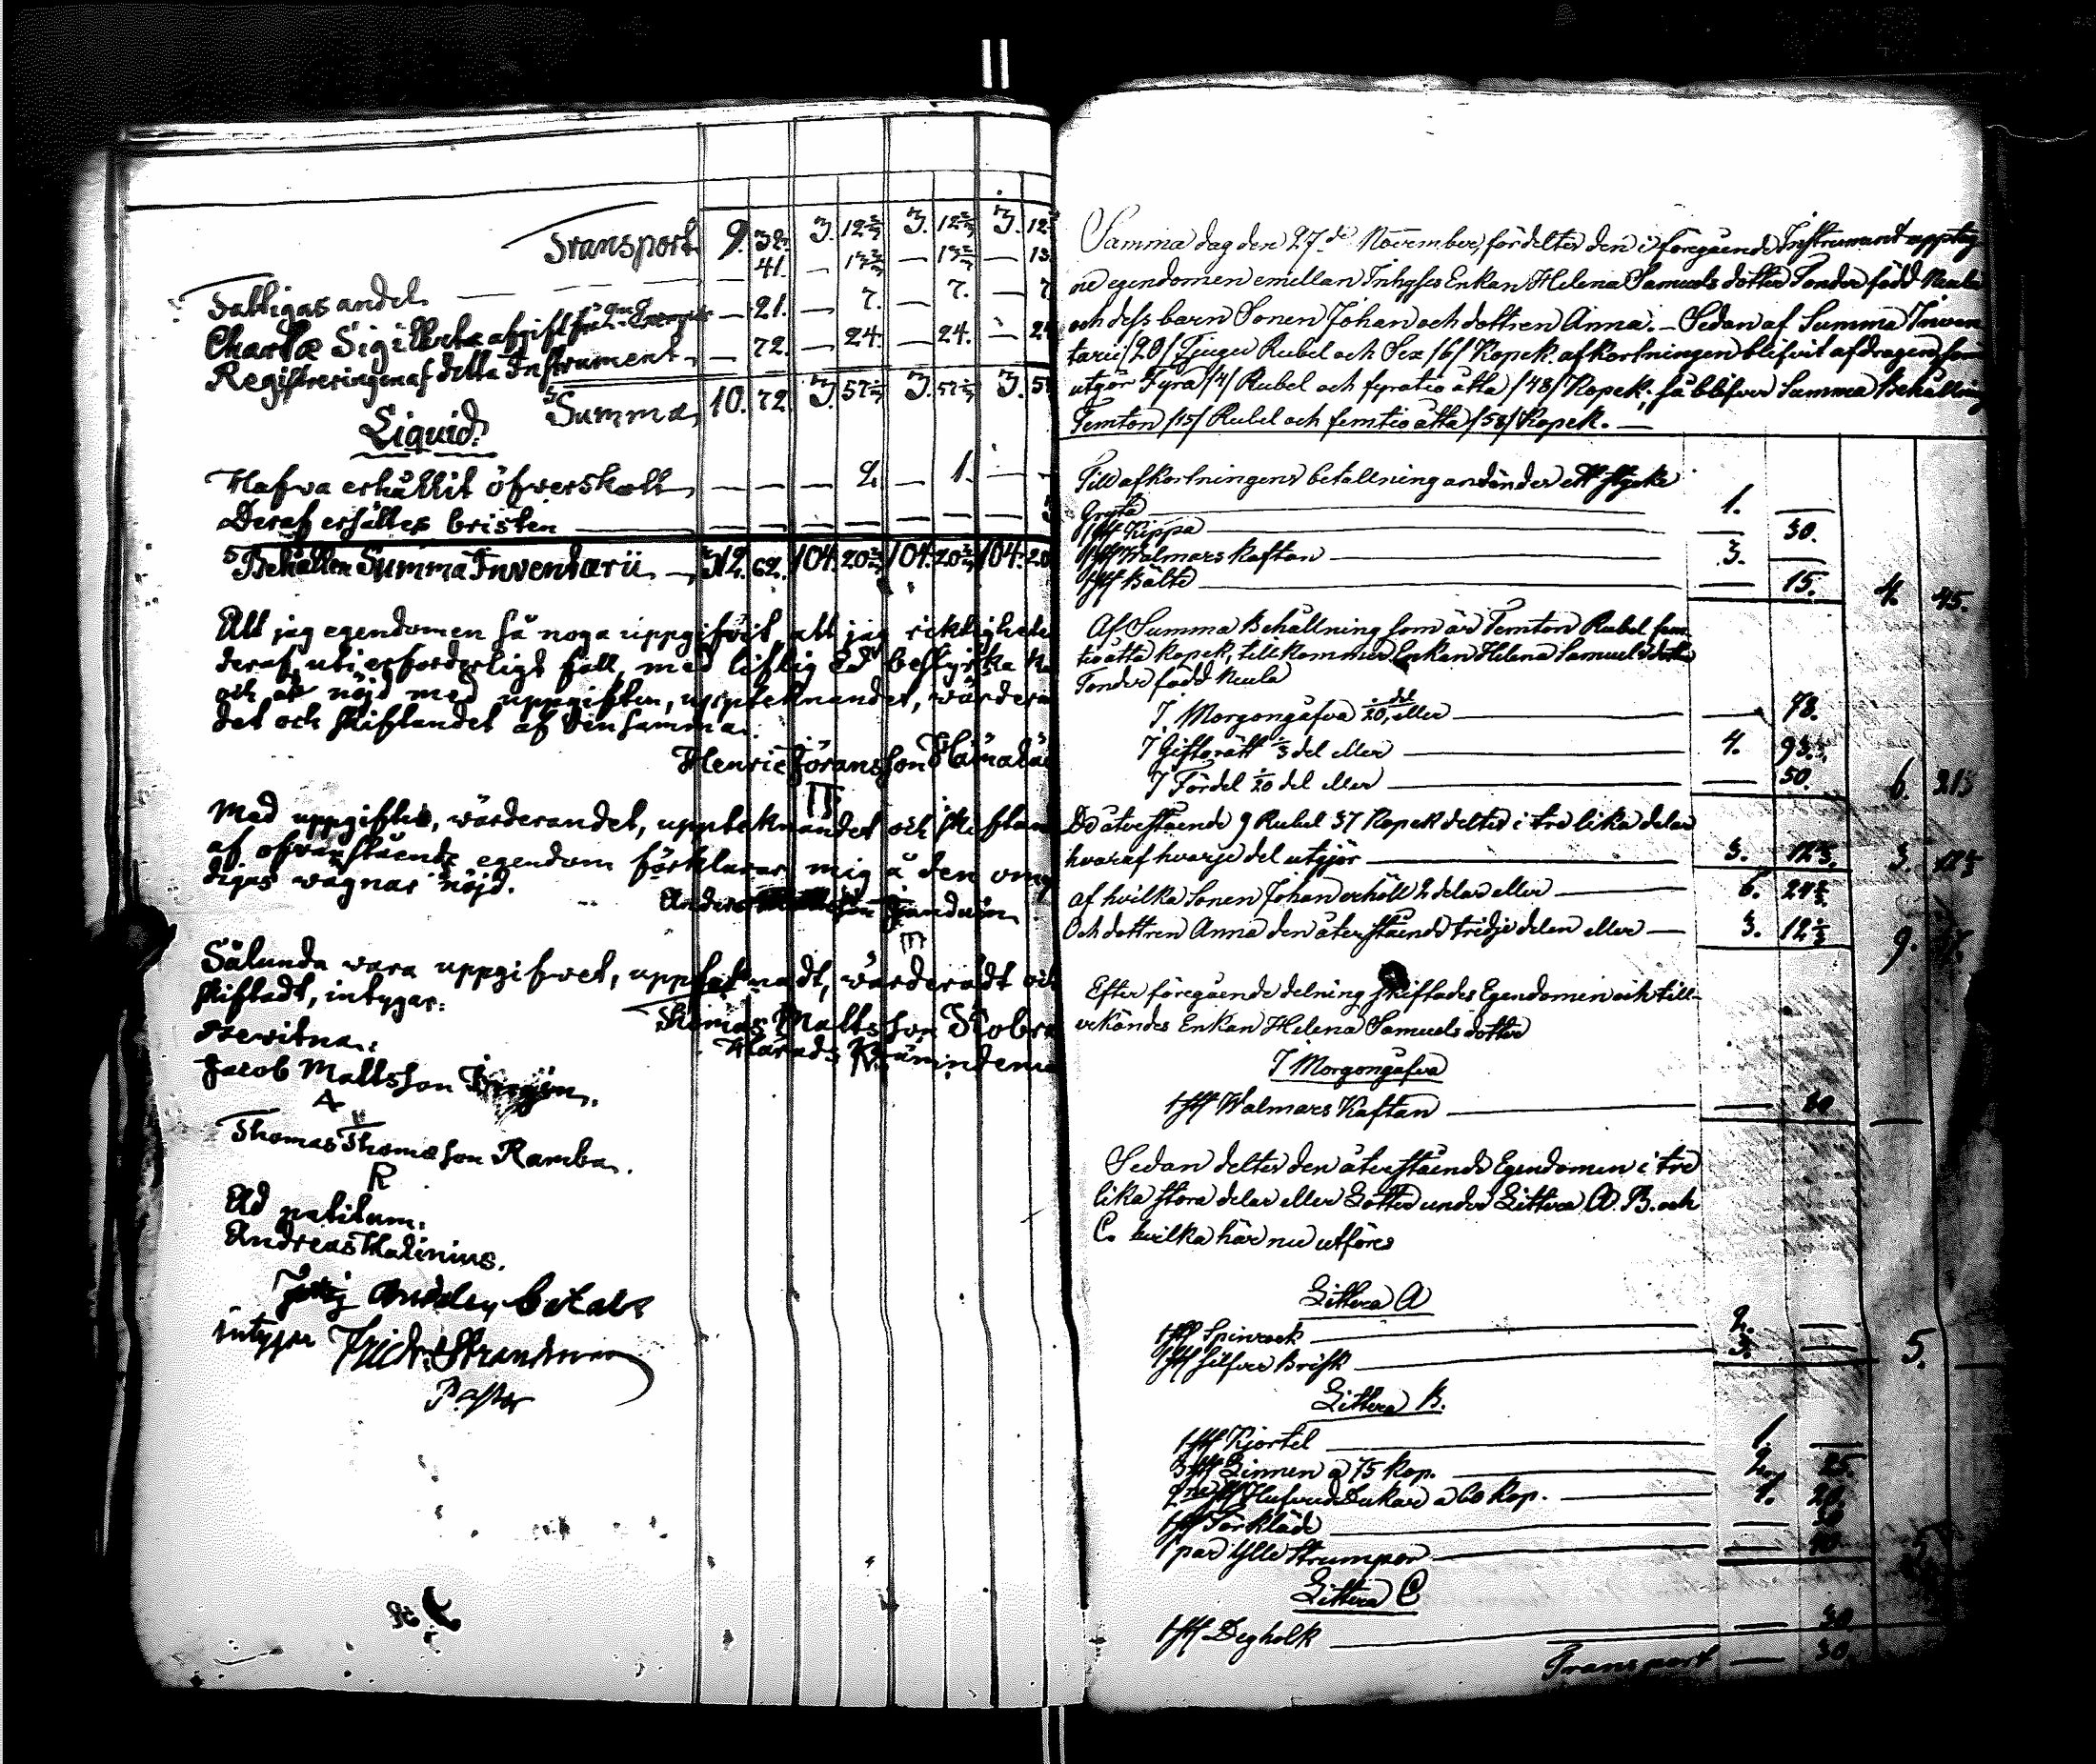 Transport 9. 38. 3. 12 2/3 3. 12 2/3 3. 12
Fattigas andel — 41. — 13 2/3 — 13 2/3 — 13
Chartæ Sigillatæ afgift — 21. — 7. — 7. — 7
Registreringen af detta Instrument — 72. — 24. — 24. — 24
Summa 10. 72 3. 57 3. 57 3. 57
Liquid:
Hafva erhållit öfverskott — — — 2. — 1. — —
Deraf erhålles bristen — — — — — — — 3
Behållen Summa Inventarii 312. 62. 104. 20 2/3 104. 20 2/3 104. 20
Att jag egendomen så noga uppgifvit, att jag riktighete
deraf, uti erforderligt fall, med liflig Ed bestyrka
och är nöjd med uppgiften, uppteknandet, wärdera
det och skiftandet af densamma.
Henric Göransson
Med uppgiften, wärderandet, uppteknandet och skiftan
af ofvanstående egendom förklarar mig å den omyn
digas wägnar nöjd.
Anders
Sålunda vara uppgifvet, uppteknadt, wärderadt och
skiftadt, intygar:
Thomas Mattsson
Härads
Jacob Mattsson
A
Thomas Thomasson Ramba.
R
Ad petitum.
Andreas Malinius.
betalt
intygar Fridr. Strandman
Pastor
Samma dag den 27de November, fördeltes den i föregående Instrument uppteg
ne egendomen emellan Inhyses Enkan Helena Samuels dotter Tonder född
och dess barn Sonen Johan och dottren Anna. — Sedan af Summa Inven
tarii /20/ Tjugu Rubel och Sex /6/ Kopek. afkortningen blifvit afdragen, som
utgör Fyra /4/ Rubel och fyratio åtta /48/ Kopek; så blifver Summa Behållning
Femton /15/ Rubel och femtio åtta /58/ Kopek. —
Till afkortningens betallning användes ett stycke
Gryta — 1. —
1 st Kippa — 30.
1 st Walmars kaftan — 3. —
1 st Bälte — 15. 4. 45.
Af Summa Behållning som är Femton Rubel fem
tio åtta kopek, tillkommer Enkan Helena Samuels dotter
Tonder född
I Morgongåfva 1/20 del eller — 78.
I Giftorätt 1/3 del eller — 4. 93
I Fördel 1/20 del eller — 50. 6. 21
De återstående 9 Rubel 37 Kopek deltes i tre lika delar
hvaraf hvarje del utgjör — 3. 12 1/3 3. 12 1/3
af hvilka Sonen Johan erhöll 2 delar eller — 6. 24 2/3
Och dottren Anna den återstående tridje delen eller — 3. 12 1/3 9. 37.
Efter föregående delning skiftades Egendomen och till-
erkändes Enkan Helena Samuels dotter
I Morgongåfva
1 st Walmars Kaftan
Sedan deltes den återstående Egendomen i tre
lika stora delar eller Lotter under Littera A. B. och
C. hvilka här nu utföres
Littera A
1 st Spinrock — 2. —
1 st Silfver Brisk — 3. — 5. —
Littera B.
1 st Kjortel — 1. —
3 st Linnen a 75 kop. — 2. 25.
2ne st Hufvud Dukar a 60 kop. — 1. 20.
1 st Förkläde
1 par Ylle Strumpor
Littera C
1 st Degholk — 30
Transport — 30.